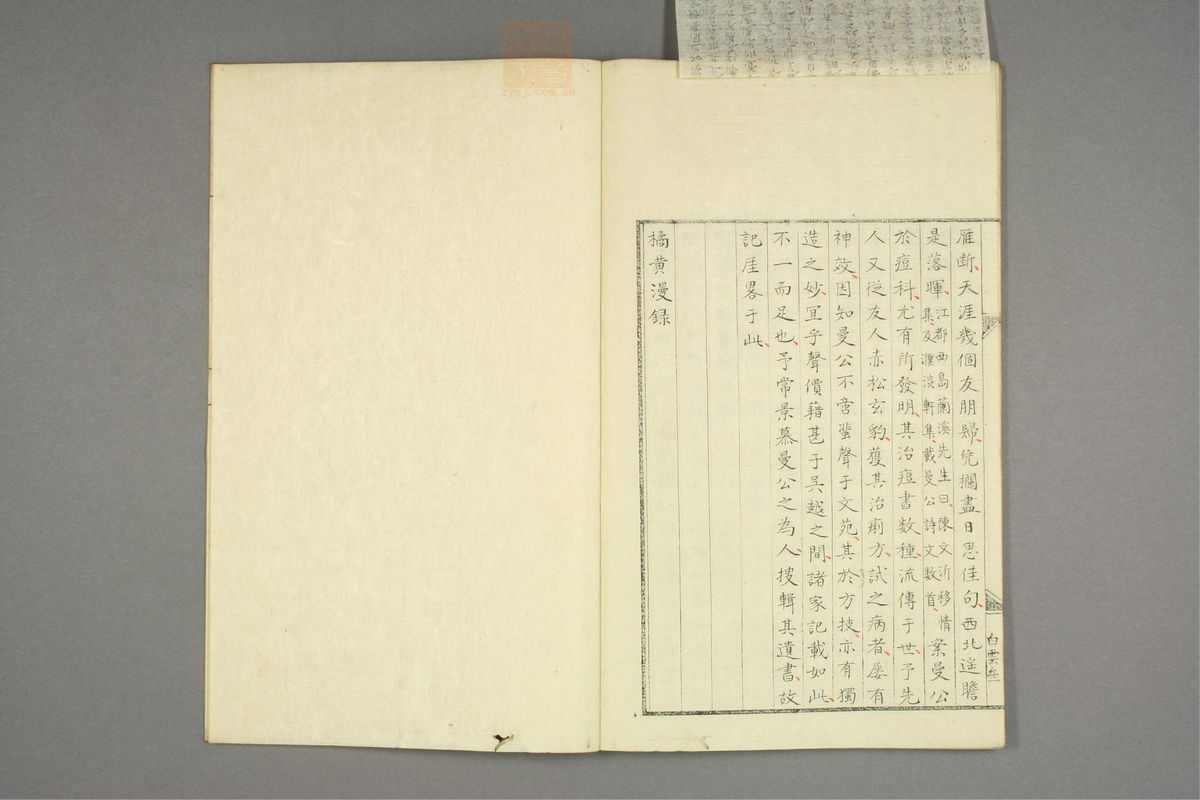 雁断天涯幾個友朋歸凭欄盡日思佳句西北遥瞻
是落暉江都西島蘭溪先生曰陳文沂移情
集及濮淡軒集載曼公詩文数首案曼公
於痘科尤有所發明其治痘書数種流傳于世予先
人又従友人赤松玄豹獲其治痢方試之病者屡有
神效因知曼公不啻蜚聲于文苑其於方技亦有獨
造之妙宜乎聲價藉甚于呉越之間諸家記載如此
不一而足也予常景慕曼公之為人搜輯其遺書故
記厓畧于此
橘黄漫録
白雲
zysj.com.cn